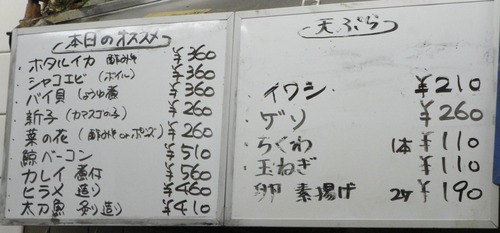 本日のオススメ
・ホタルイカ 酢みそ ¥360
・シャコエビ (ボイル) ¥360
・バイ貝 (しょうゆ煮) ¥360
・新子 (カマスゴの子) ¥260
・菜の花 (酢みそorポンズ) ¥260
鯨ベーコン ¥510
・カレイ 煮付 ¥560
・ヒラメ 造り ¥460
太刀魚 造り ¥410
天ぷら
・イワシ ¥210
・ゲソ ¥260
・ちくわ 1本 ¥110
・玉ねぎ ¥110
卵 素揚げ 2ケ ¥190